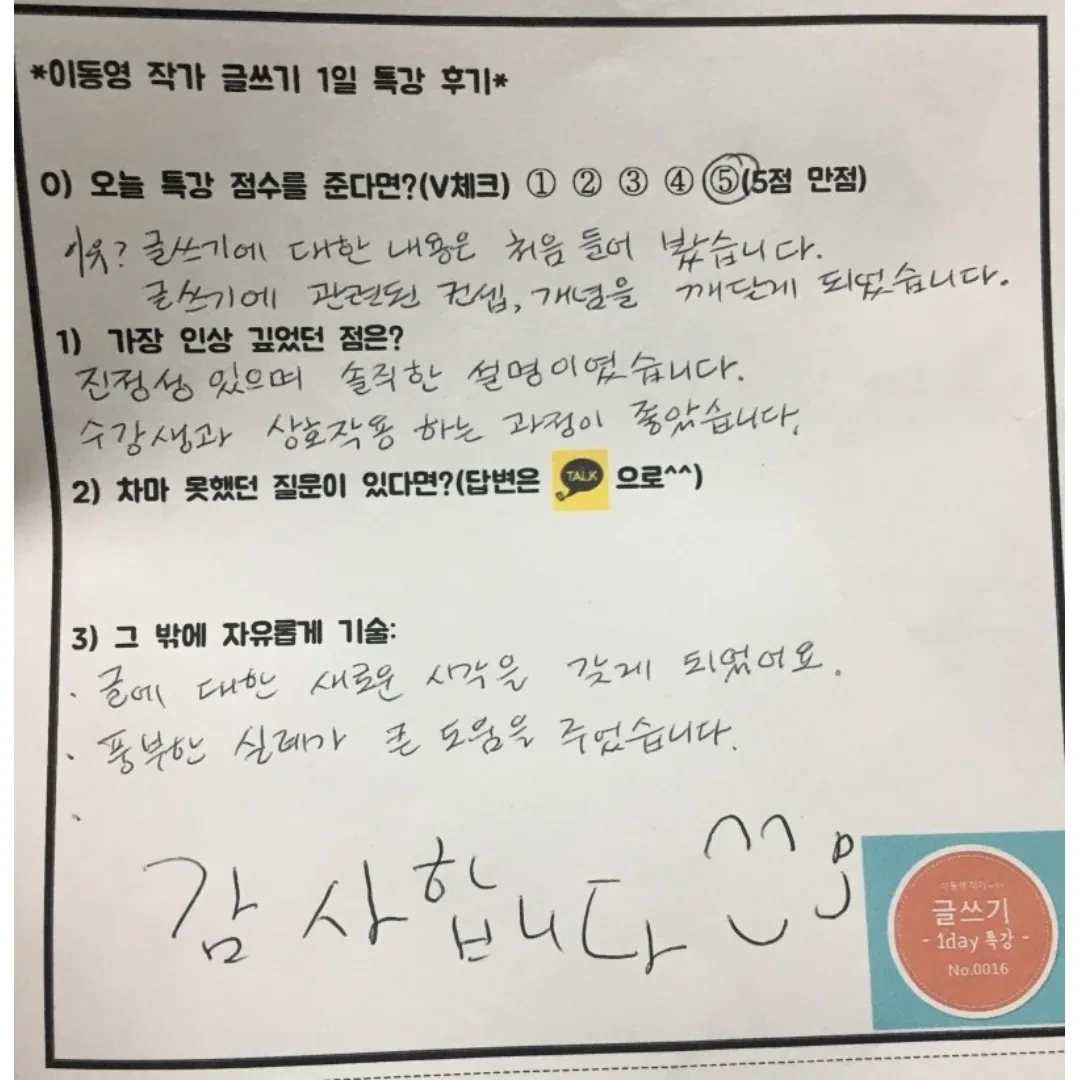 *이동영 작가 글쓰기 1일 특강 후기*
0) 오늘 특강 점수를 준다면?(V체크) ① ② ③ ④ ⑤(5점 만점)
이유? 글쓰기에 대한 내용은 처음 들어 봤습니다.
글쓰기에 관련된 컨셉, 개념을 깨닫게 되었습니다.
1) 가장 인상 깊었던 점은?
진정성 있으며 솔직한 설명이였습니다.
수강생과 상호작용 하는 과정이 좋았습니다.
2) 차마 못했던 질문이 있다면?(답변은 TALK 으로^^)
3) 그 밖에 자유롭게 기술:
· 글에 대한 새로운 시각을 갖게 되었어요.
· 풍부한 실례가 큰 도움을 주었습니다.
·
감사합니다
이동영작가
글쓰기
- 1day 특강 -
No.0016